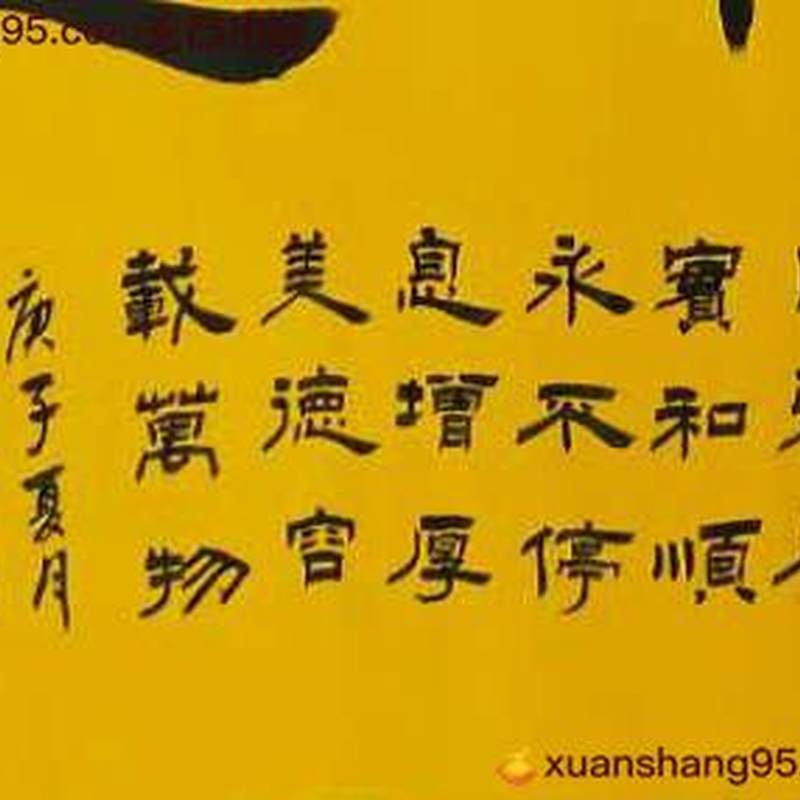 95.co
實和順
永不停
息增厚
美德容
載萬物
庚子夏月
xuanshang95